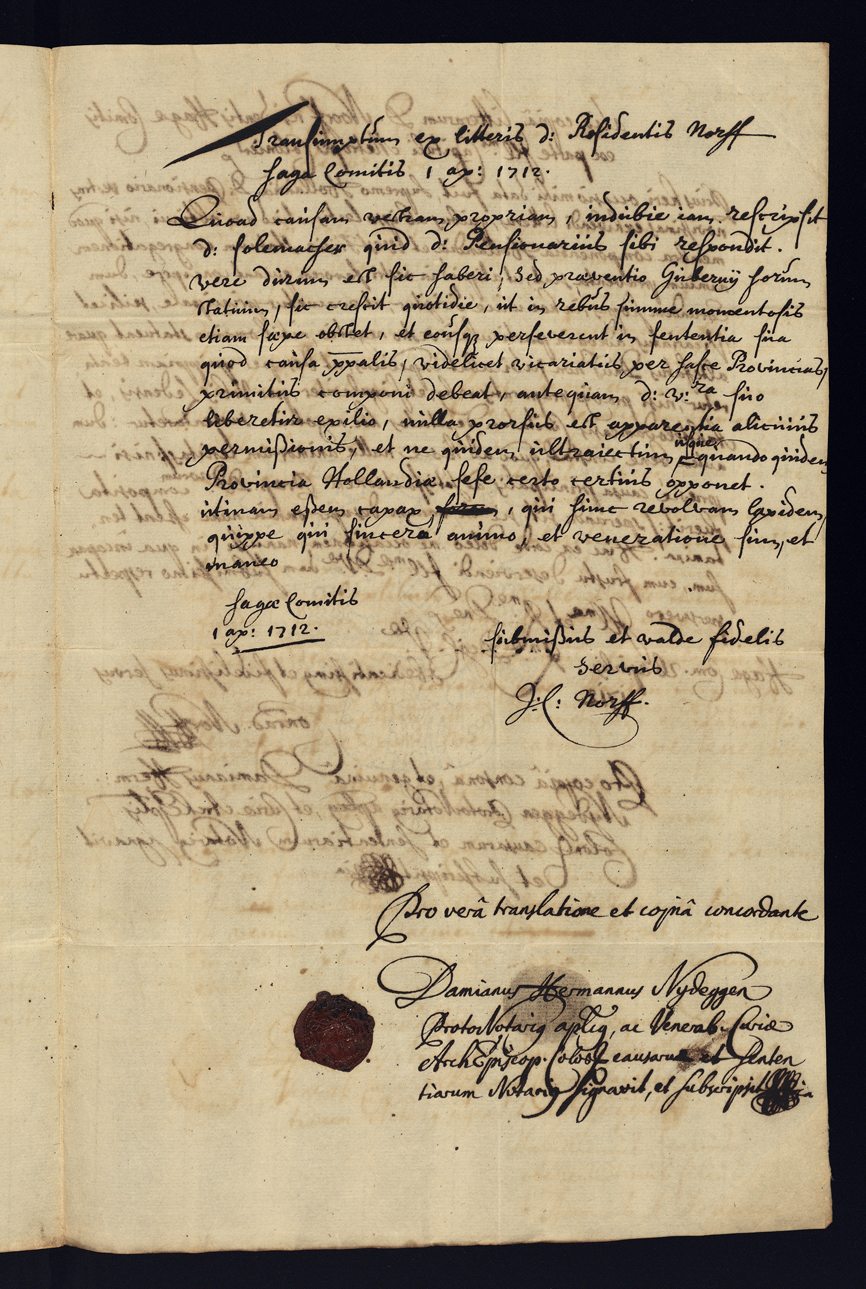 Transsumptum ex litteris d: Residentis Norff
hagæ Comitis 1 apr: 1712.
Quoad causam vestram propriam, indubie iam rescripsit
d: solemacher quid d: Pensionarius sibi respondit.
vere durum est sic haberi, sed præventio Guberny horum
statuum, sic crescit quotidie, ut in rebus summe momentosis
etiam sæpe obstet, et cousq perseverent in sententia sua
quod causa ppalis, videlicet vicariatus per hasce Provincias,
primitus componi debeat, antequam d: v:ra suo
liberetur exilio, nulla prorsus est apparentia alicuius
permissionis, et ne quidem ultraiectum usque, quando quidem
Provincia Hollandiæ sese certo certius opponet.
utinam essem capax, qui hunc revolvam lapidem,
quippe qui sincero animo, et veneratione sum, et
maneo
hagæ Comitis
1 apr: 1712.
submissus et valde fidelis
servus
J: C: Norff.
Pro verâ translatione et copiâ concordante
Damianus Hermannus Nydeggen
ProtoNotariq apliq, ac Venerab. Curiæ
ArchEpiscop. causarum et Senten
tiarum Notariq signavit, et subscripsit